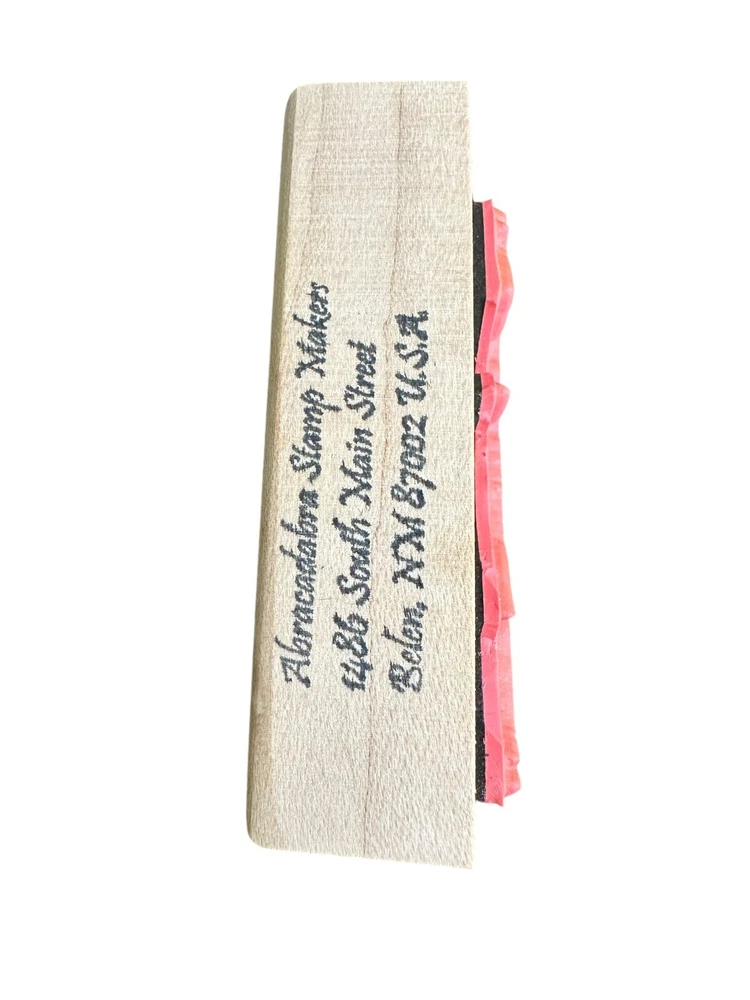 Abracadabra Stamp Makers
1486 South Main Street
Belen, NM 87002 U.S.A.